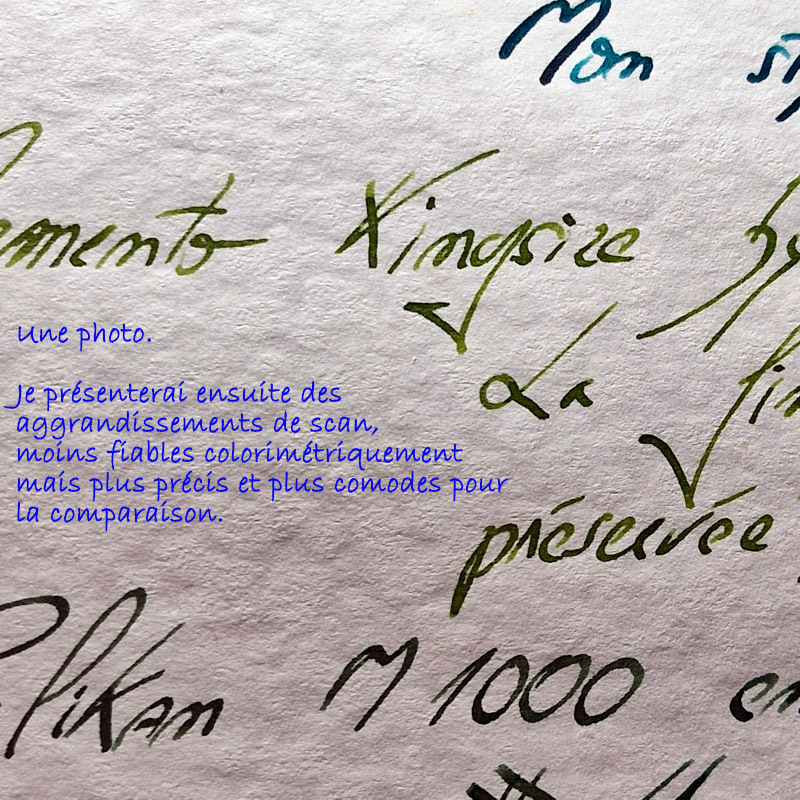 Mon
Kingsize
Une photo.
La
Je présenterai ensuite des
aggrandissements de scan,
moins fiables colorimétriquement
mais plus précis et plus comodes pour
la comparaison.
préservée
Pelikan M 1000 en